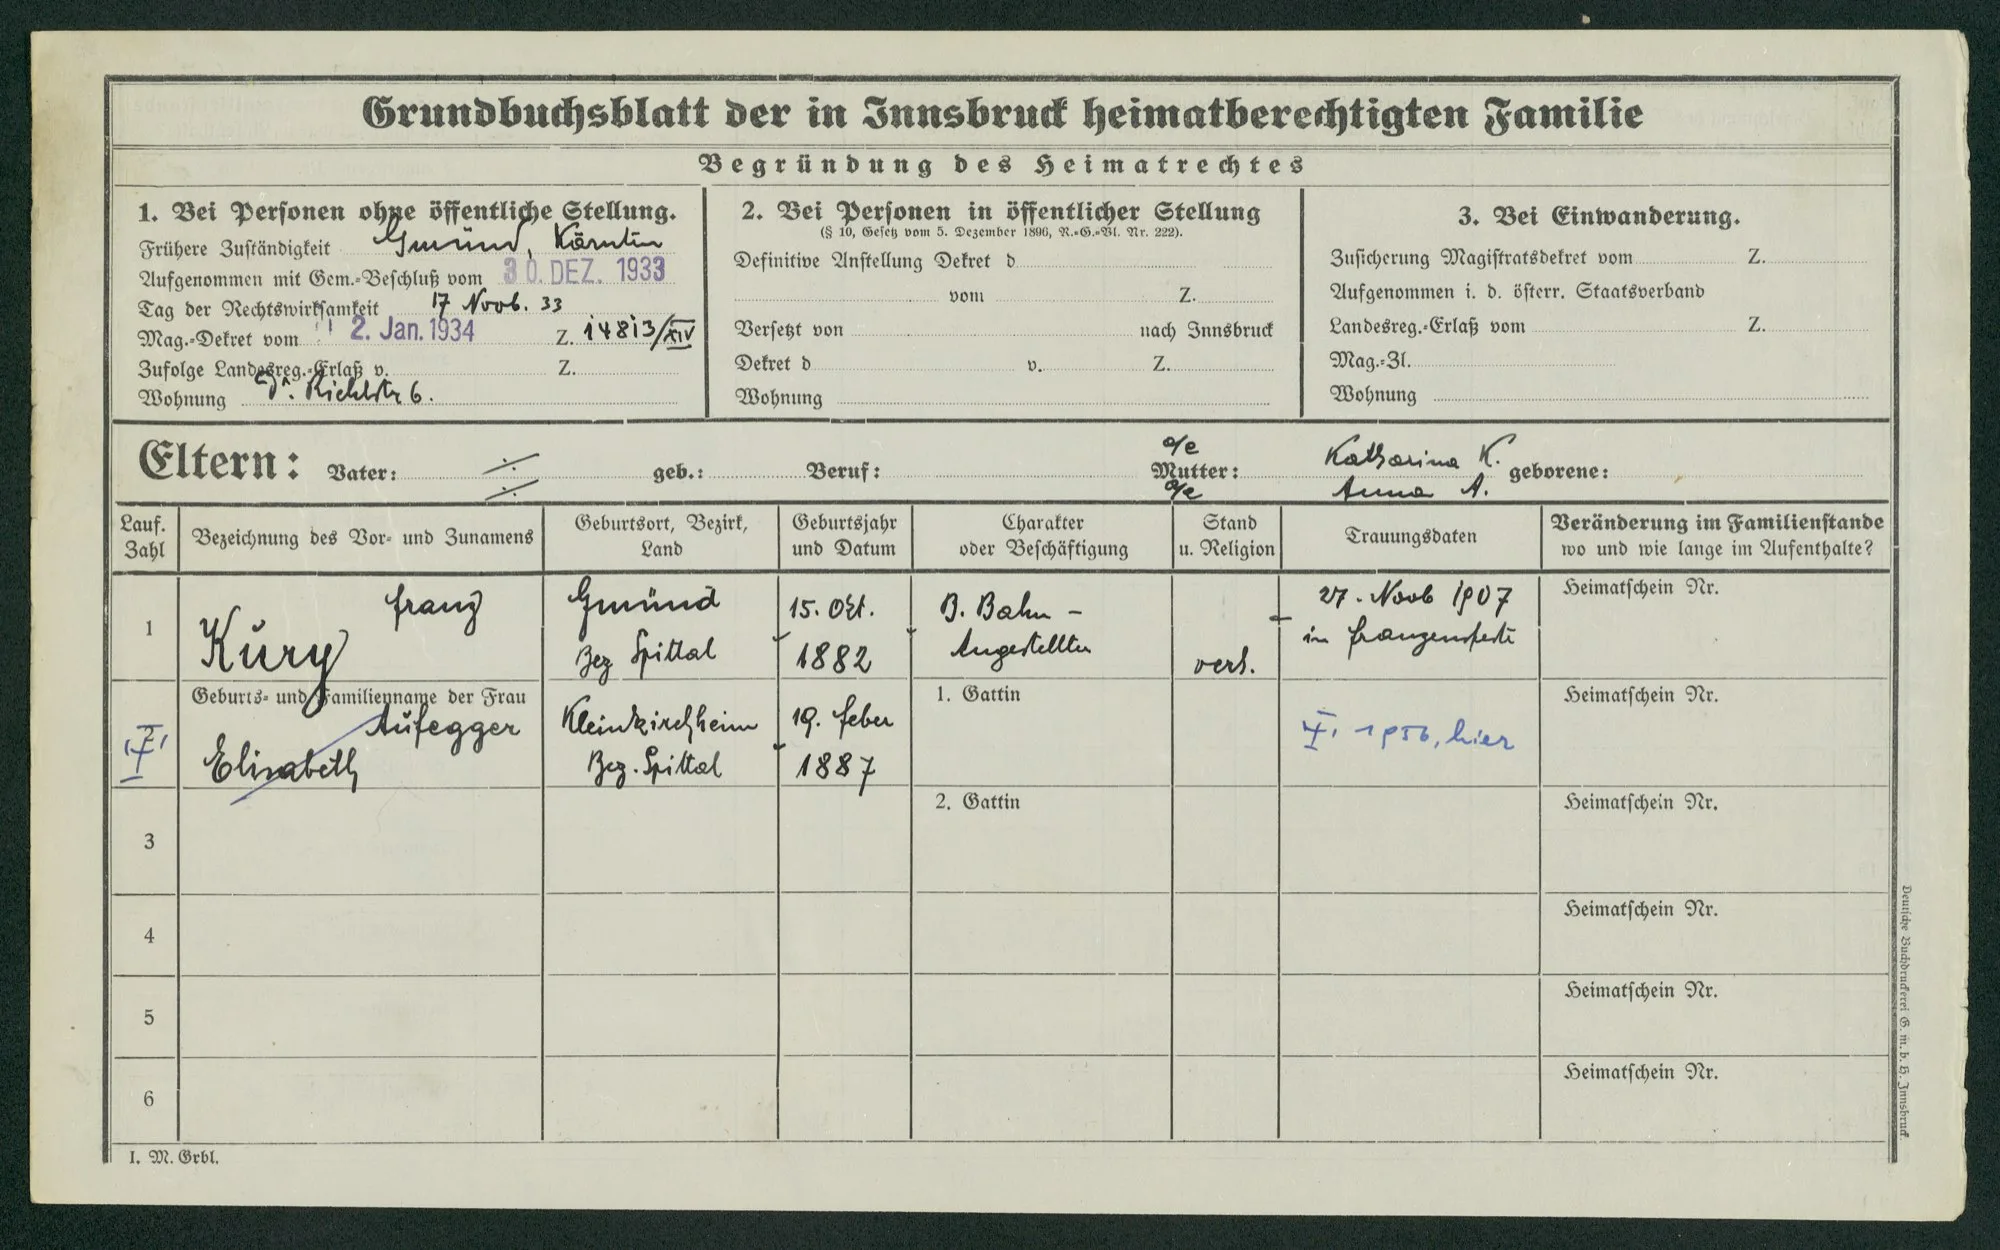 Grundbuchsblatt der in Innsbruck heimatberechtigten Familie
Begründung des Heimatrechtes
1. Bei Personen ohne öffentliche Stellung.
Frühere Zuständigkeit Gmünd, Kärnten
Aufgenommen mit Gem.-Beschluß vom 30. DEZ. 1933
Tag der Rechtswirksamkeit 17 Novb. 33
Mag.-Dekret vom 2. Jan. 1934 Z. 14813/XIV
Zufolge Landesreg.-Erlaß v. Z.
Wohnung 6.
2. Bei Personen in öffentlicher Stellung
(§ 10, Gesetz vom 5. Dezember 1896, R.-G.-Bl. Nr. 222).
Definitive Anstellung Dekret d
vom Z.
Versetzt von nach Innsbruck
Dekret d v. Z.
Wohnung
3. Bei Einwanderung.
Zusicherung Magistratsdekret vom Z.
Aufgenommen i. d. österr. Staatsverband
Landesreg.-Erlaß vom Z.
Mag.-Zl.
Wohnung
a/e Katharina K.
Eltern: Vater: geb.: Beruf: Mutter: geborene:
a/e Anna A.
Lauf. Zahl
Bezeichnung des Vor- und Zunamens
Geburtsort, Bezirk, Land
Geburtsjahr und Datum
Charakter oder Beschäftigung
Stand u. Religion
Trauungsdaten
Veränderung im Familienstande
wo und wie lange im Aufenthalte?
1
Franz
Kury
Gmünd
Bez Spittal
15. Okt.
1882
B. Bahn-
Angestellter
verh.
27. Novb 1907
in Franzensfeste
Heimatschein Nr.
2
Geburts- und Familienname der Frau
Aufegger
Elisabeth
Kleinkirchheim
Bez. Spittal
19. Feber
1887
1. Gattin
1956, hier
Heimatschein Nr.
3
2. Gattin
Heimatschein Nr.
4
Heimatschein Nr.
5
Heimatschein Nr.
6
Heimatschein Nr.
I. M. Grbl.
Deutsche Buchdruckerei G. m. b. H. Innsbruck.